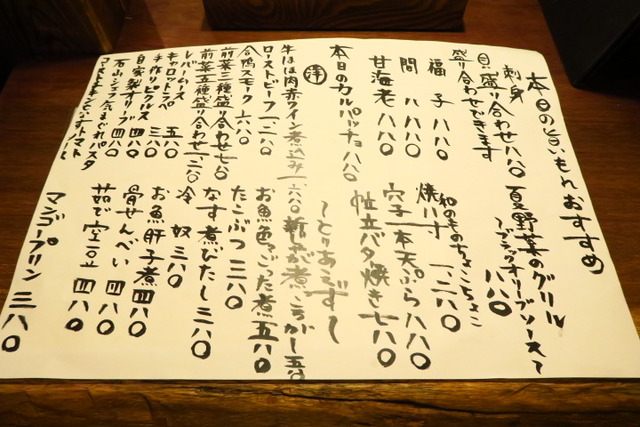 本日の旨いもんおすすめ
刺身
貝盛り合わせ 八八〇
盛り合わせできます
福子 八八〇
間八 八八〇
甘海老 八八〇
本日のカルパッチョ 八八〇
夏野菜のグリル
〜ブラックオリーブソース〜
八八〇
和のものちょこちょこ
焼八寸 一二八〇
穴子一本天ぷら 八八〇
帆立バタ焼き 七八〇
〜とりあえず〜
洋
牛ほほ肉赤ワイン煮込み 一六八〇
ローストビーフ 一二八〇
合鴨スモーク 六八〇
前菜三種盛り合わせ 七八〇
前菜五種盛り合わせ 一二八〇
レバームース
キャロットラペ 五八〇
手作りピクルス 三八〇
自家製オリーブ 四八〇
石山シェフ気まぐれパスタ
新じゃが煮ころがし 五八〇
お魚色々ごった煮 五八〇
たこぶつ 三八〇
なす煮びたし 三八〇
冷奴 三八〇
お魚肝子煮 四八〇
骨せんべい 四八〇
茹で空豆 四八〇
マンゴープリン 三八〇